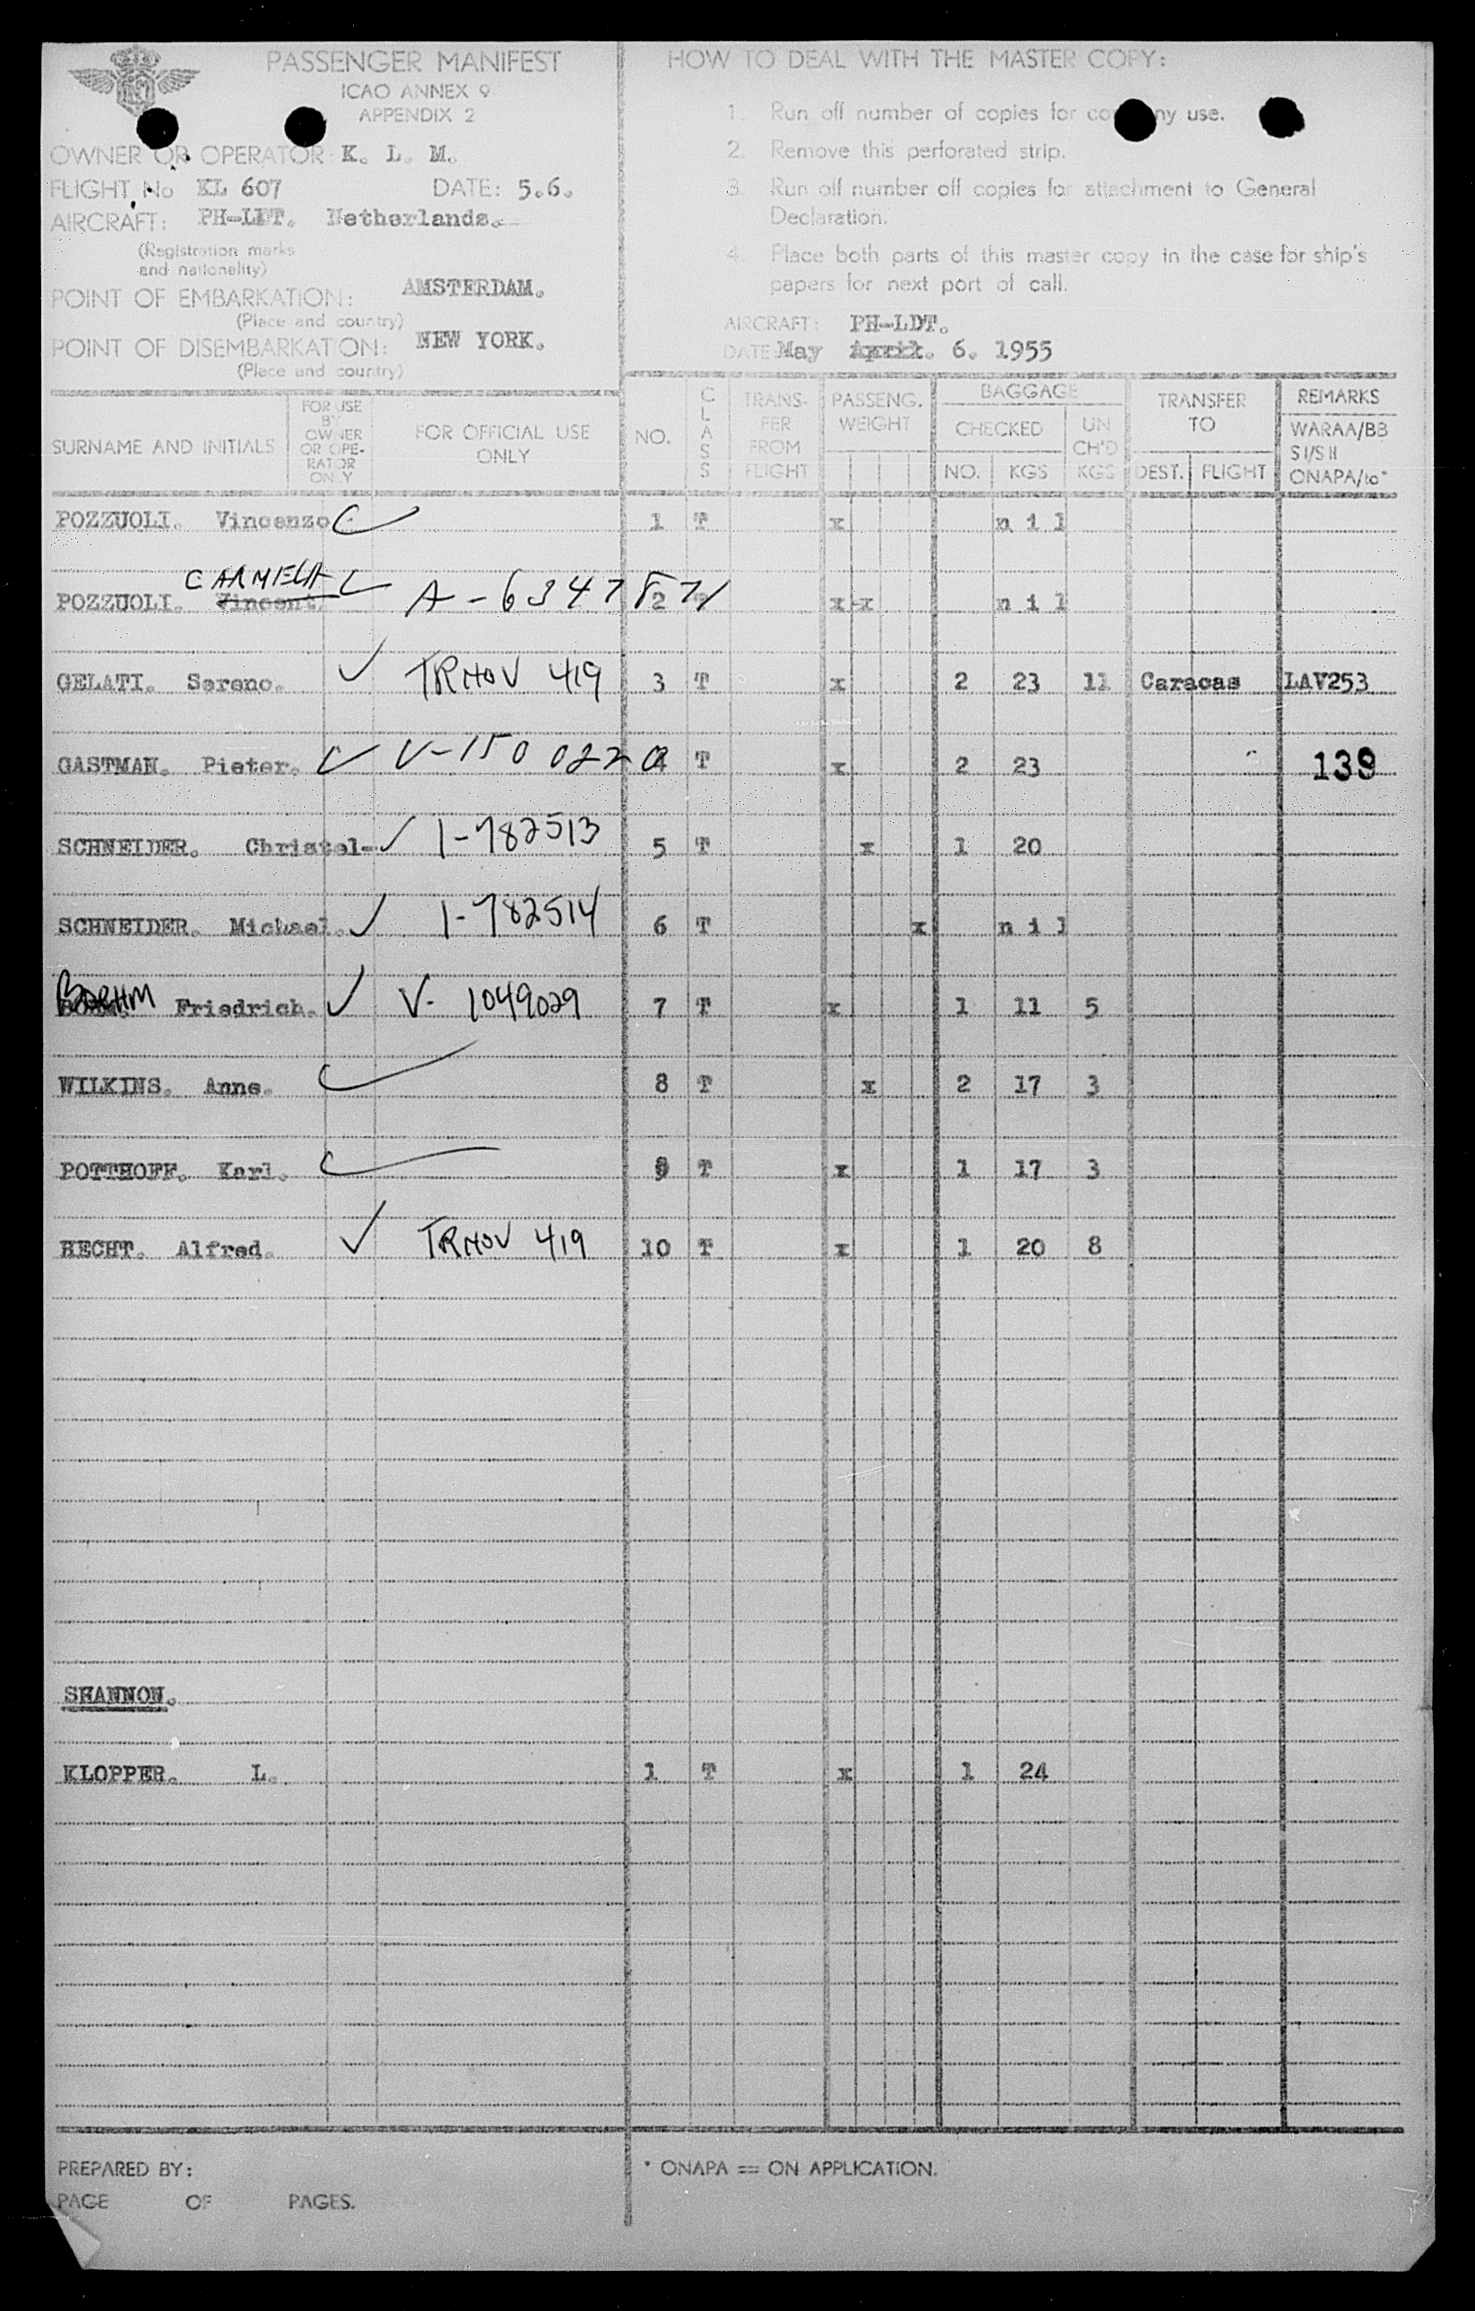 PASSENGER MANIFEST
ICAO ANNEX 9
APPENDIX 2
OWNER OR OPERATOR: K. L. M.
FLIGHT No KL 607 DATE: 5.6.
AIRCRAFT: PH-LDT. Netherlands.
(Registration marks
and nationality)
POINT OF EMBARKATION: AMSTERDAM.
(Place and country)
POINT OF DISEMBARKATION: NEW YORK.
(Place and country)
HOW TO DEAL WITH THE MASTER COPY:
1. Run off number of copies for company use.
2. Remove this perforated strip.
3. Run off number off copies for attachment to General
Declaration.
4. Place both parts of this master copy in the case for ship's
papers for next port of call.
AIRCRAFT: PH-LDT.
DATE: May April. 6. 1955
SURNAME AND INITIALS
FOR USE
BY
OWNER
OR OPE-
RATOR
ONLY
FOR OFFICIAL USE
ONLY
NO.
CLASS
TRANS-
FER
FROM
FLIGHT
PASSENG.
WEIGHT
BAGGAGE
CHECKED
NO. KGS
UN
CH'D
KGS
TRANSFER
TO
DEST. FLIGHT
REMARKS
WARAA/BB
SI/SII
ONAPA/to*
POZZUOLI. Vincenzo 1 T x nil
CARMELA
POZZUOLI. Vincent. A-6347871 2 x x nil
GELATI. Sereno. TRMOV 419 3 T x 2 23 11 Caracas LAV253
GASTMAN. Pieter. V-1500220 4 T x 2 23 139
SCHNEIDER. Christel- 1-782513 5 T x 1 20
SCHNEIDER. Michael. 1-782514 6 T x nil
BOEHM Friedrich. V- 1049029 7 T x 1 11 5
WILKINS. Anne. 8 T x 2 17 3
POTTHOFF. Karl. 9 T x 1 17 3
HECHT. Alfred. TRMOV 419 10 T x 1 20 8
SHANNON.
KLOPPER. L. 1 T x 1 24
PREPARED BY:
PAGE OF PAGES.
* ONAPA = ON APPLICATION.